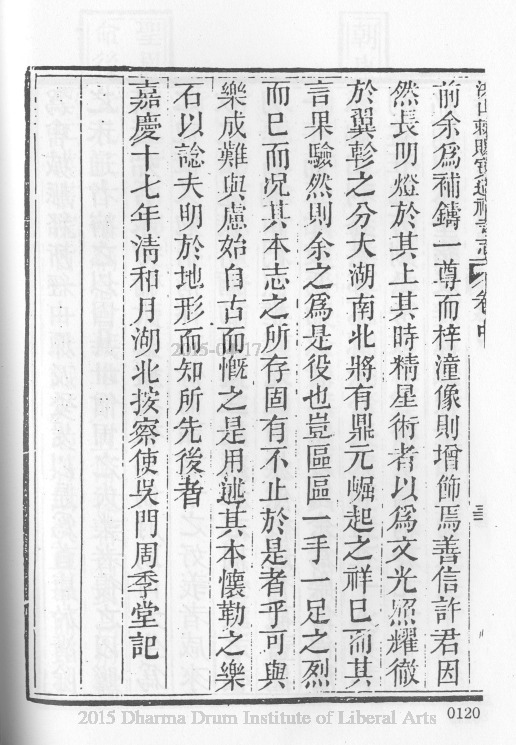 前余爲補鑄一尊而梓潼像則增飾焉善信許君因
然長明燈於其上其時精星術者以爲文光照耀徹
於翼軫之分大湖南北將有鼎元崛起之祥巳而其
言果驗然則余之爲是役也豈區區一手一足之烈
而巳而况其本志之所存固有不止於是者乎可與
樂成難與慮始自古而慨之是用述其本懷勒之樂
石以諗夫明於地形而知所先後者
嘉慶十七年清和月湖北按察使吳門周季堂記
2015-04-17
2015 Dharma Drum Institute of Liberal Arts
0120